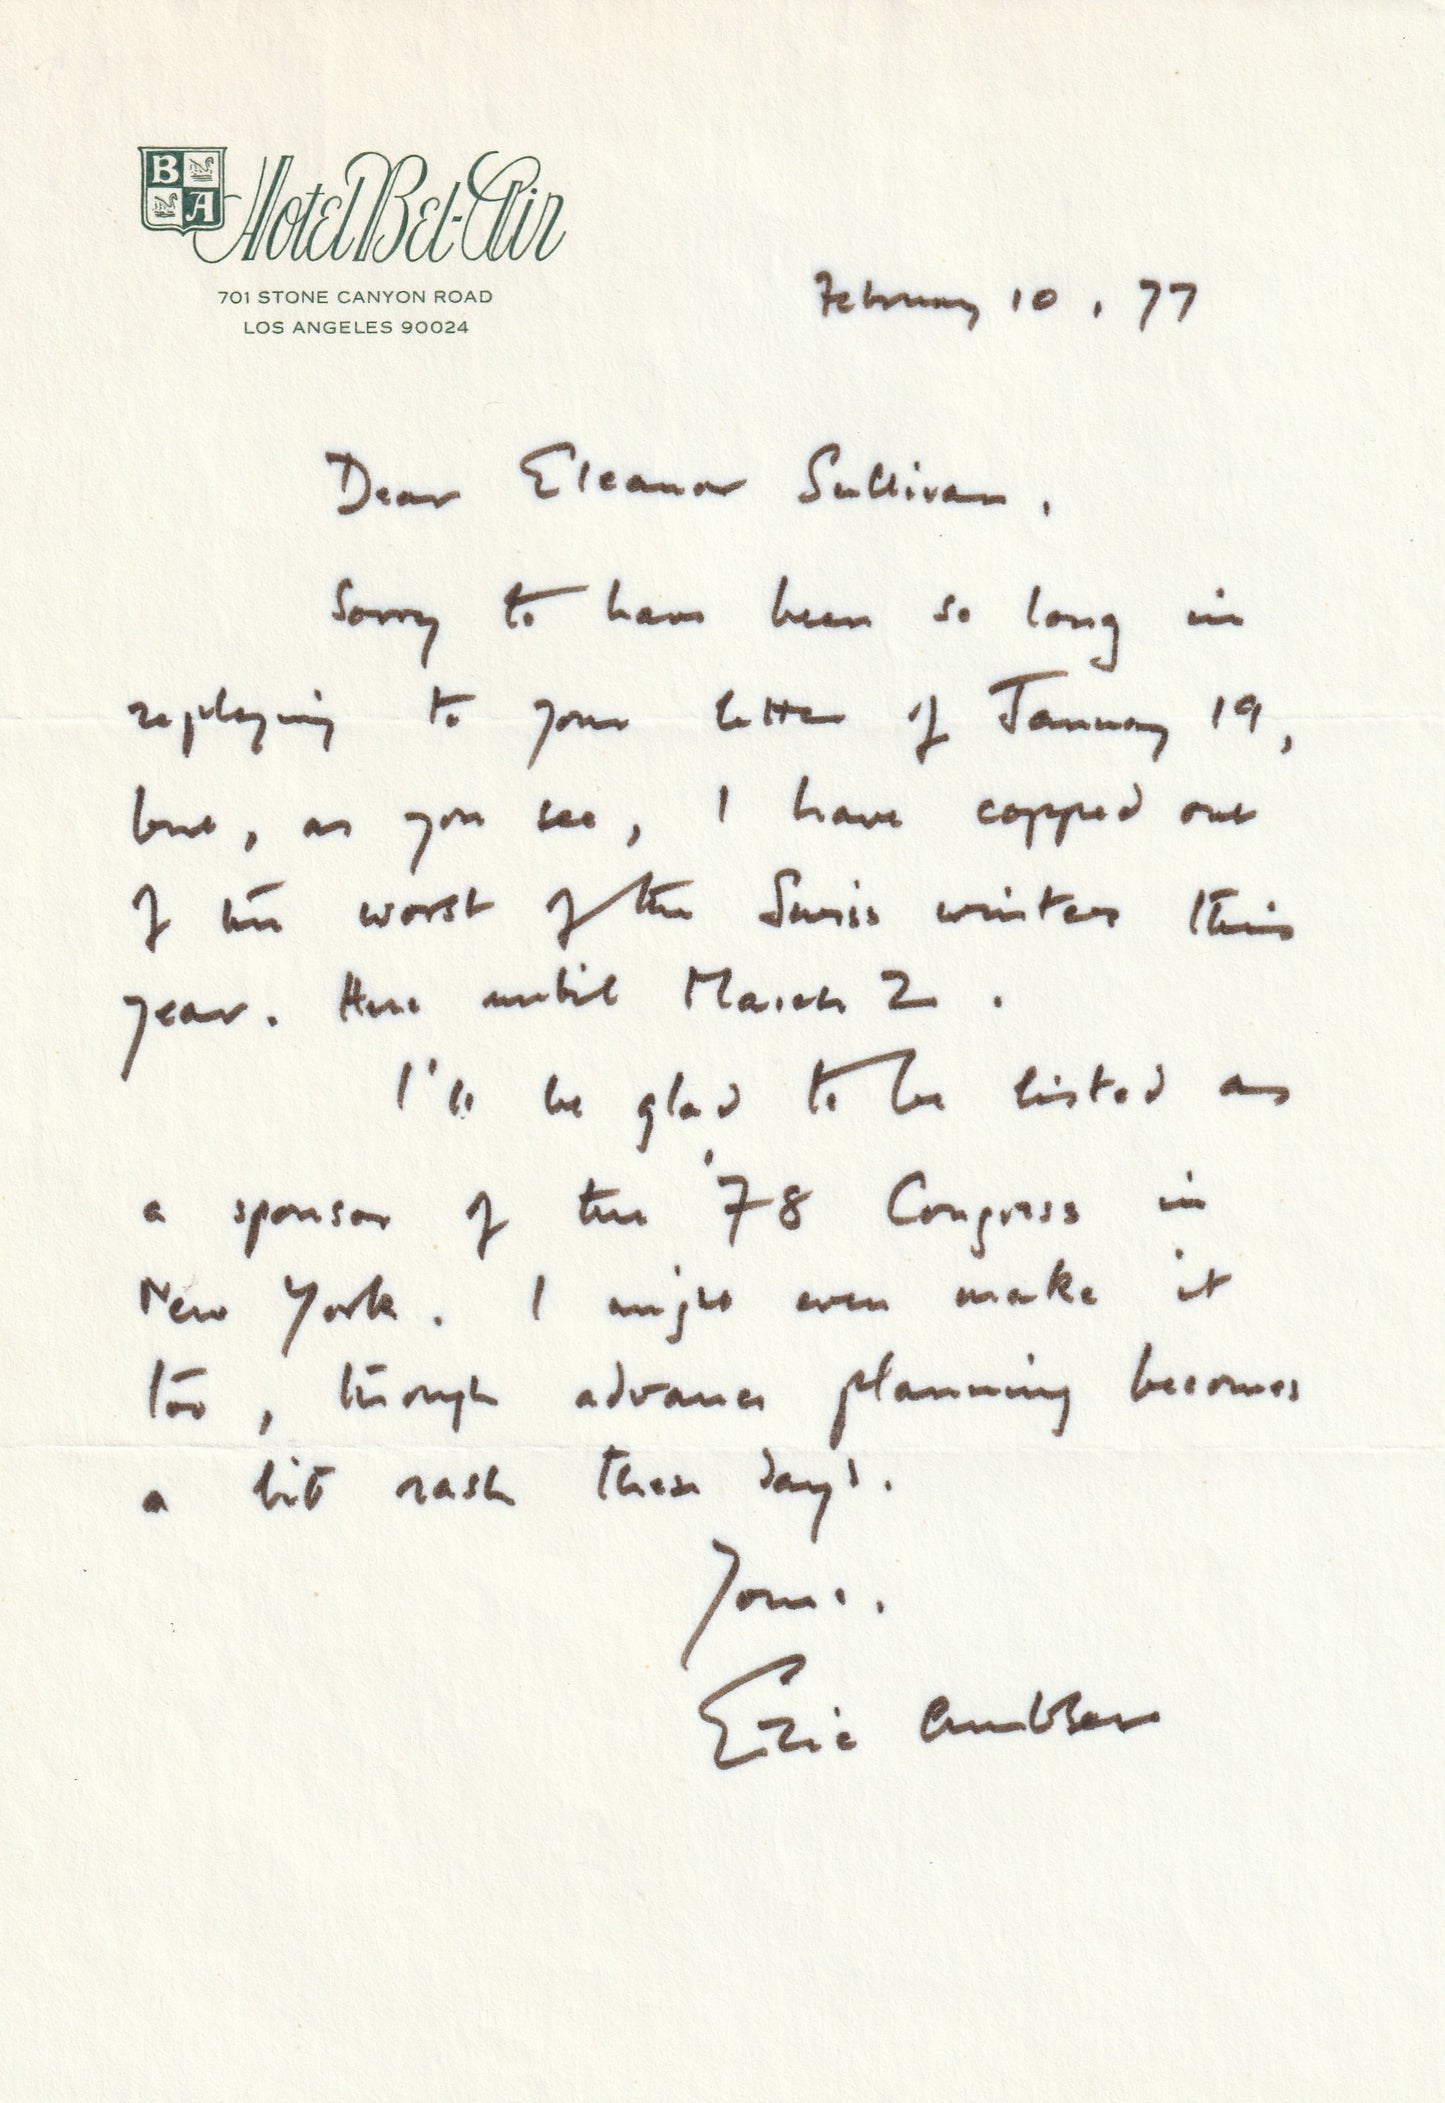 B A
Hotel Bel-Air
701 STONE CANYON ROAD
LOS ANGELES 90024
February 10, 77
Dear Eleanor Sullivan,
Sorry to have been so long in
replying to your letter of January 19,
but, as you see, I have copped out
of the worst of the Swiss winter this
year. Here until March 2.
I'll be glad to be listed as
a sponsor of the '78 Congress in
New York. I might even make it
too, though advance planning becomes
a bit rash these days.
Yours,
Eric Ambler